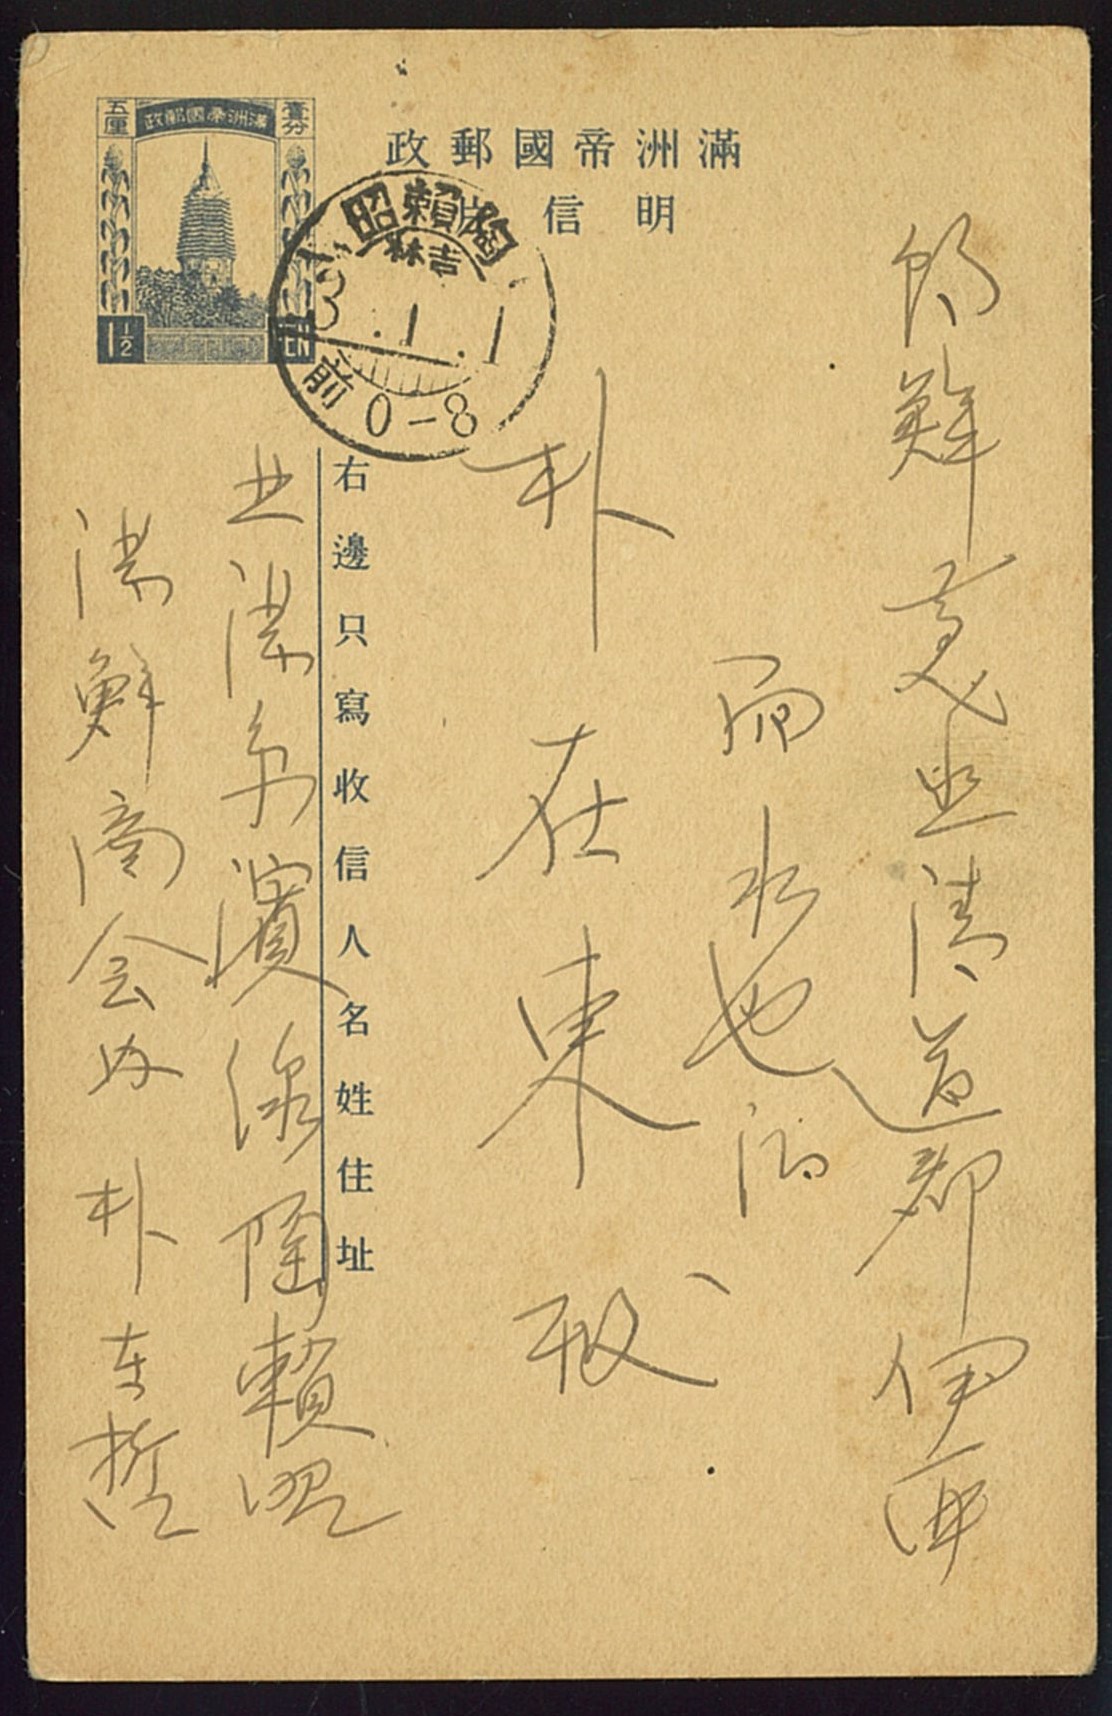 滿洲帝國郵政
五厘
壹分
1½
滿洲帝國郵政
明信
陶賴昭
吉林
3.1.1
前0-8
朝鮮慶北清道郡伊西
面水也洞
朴在東殿
右邊只寫收信人名姓住址
北满京濱線陶賴昭
满鮮商会内朴在哲